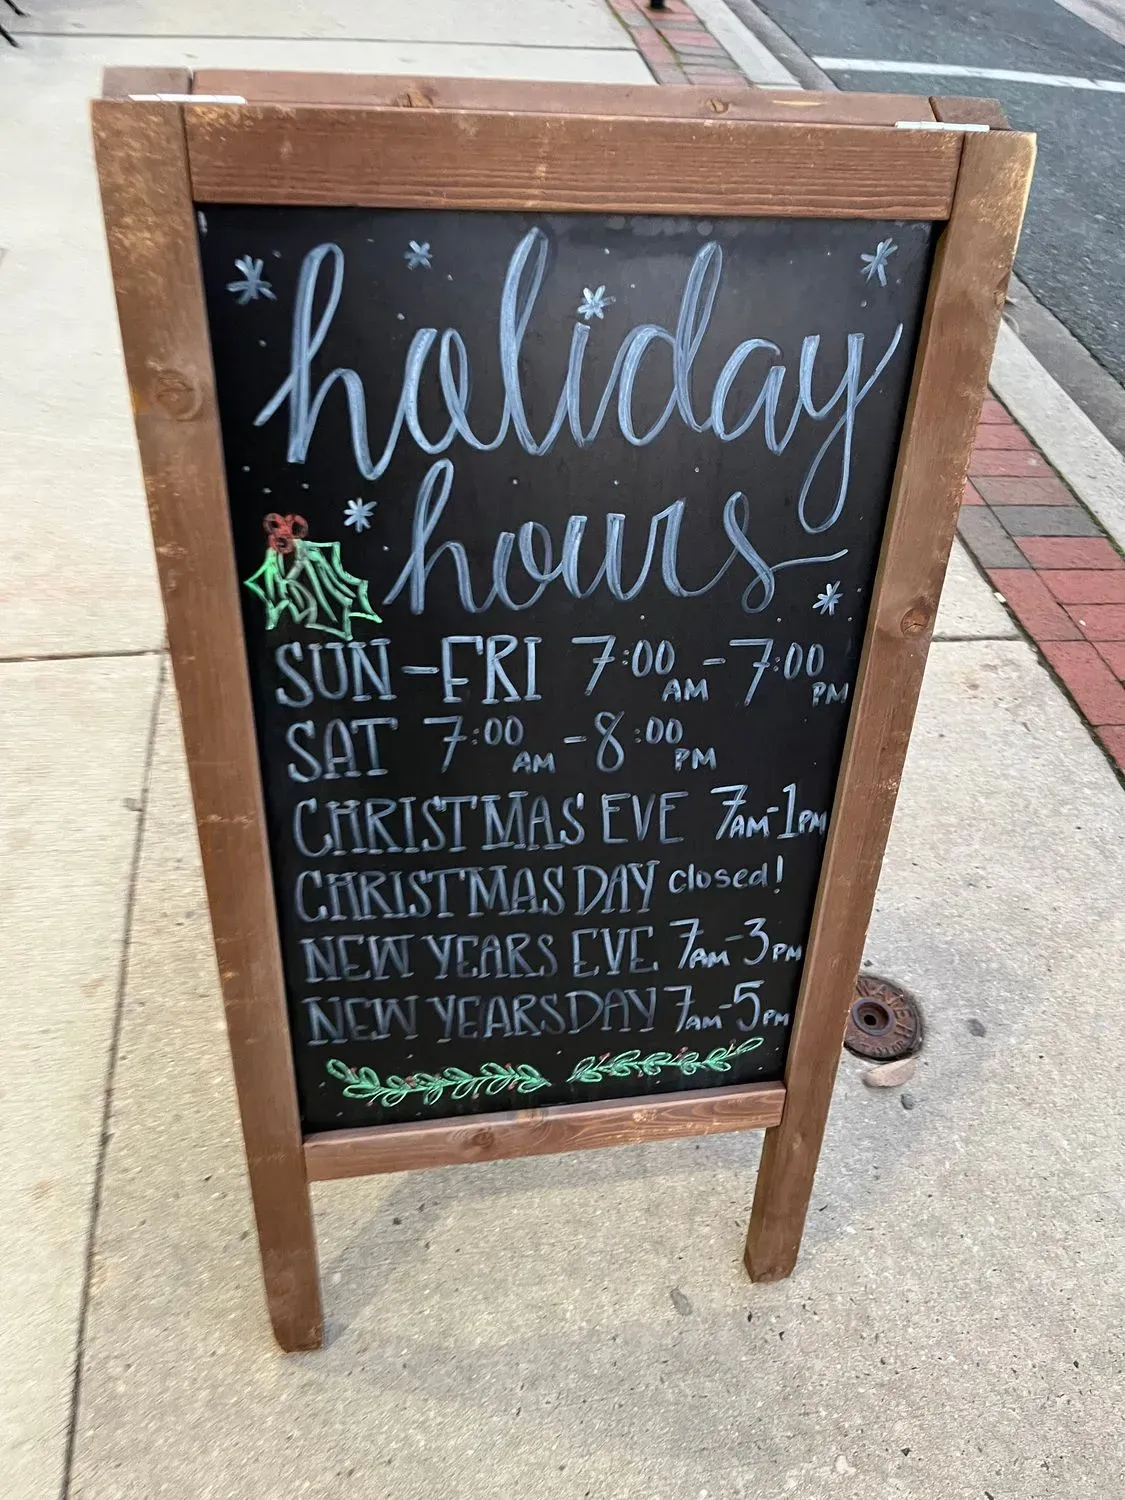 holiday
hours
SUN-FRI 7:00 AM - 7:00 PM
SAT 7:00 AM - 8:00 PM
CHRISTMAS EVE 7AM-1PM
CHRISTMAS DAY closed!
NEW YEARS EVE 7AM-3PM
NEW YEARS DAY 7AM-5PM
WATER